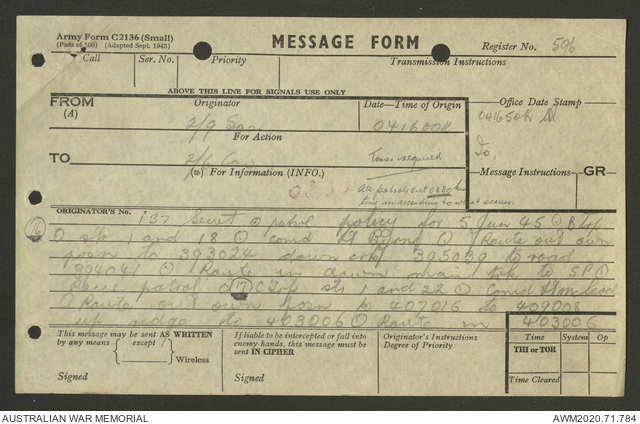 Army Form C2136 (Small)
(Pads of 100) (Adapted Sept. 1943)
MESSAGE FORM
Register No. 596
Call Ser. No. Priority Transmission Instructions
ABOVE THIS LINE FOR SIGNALS USE ONLY
FROM
(A)
Originator
Date—Time of Origin
Office Date Stamp
2/9
041600B
041650K
For Action
TO
2/6
(W) For Information (INFO.)
Times required
Message Instructions GR
All patrols out 0830 hrs
time in according to what occurs.
ORIGINATOR'S No.
16
137 Secret ⊙ patrol policy for 5 Jun 45 ⊙ B
⊙ str 1 and 8 ⊙ comd ⊙ Route out own
posn to 393024 down crk 395039 to road
394041 ⊙ Route in down main trk to SP ⊙
patrol ⊙ 7 str 1 and 22 ⊙ Comd
⊙ Route out own posn to 407016 to 409008
up ridge to 403006 ⊙ Route in
403006
This message may be sent AS WRITTEN
by any means except
Wireless
Signed
If liable to be intercepted or fall into
enemy hands, this message must be
sent IN CIPHER
Signed
Originator's Instructions
Degree of Priority
Time System Op
THI or TOR
Time Cleared
AUSTRALIAN WAR MEMORIAL
AWM2020.71.784